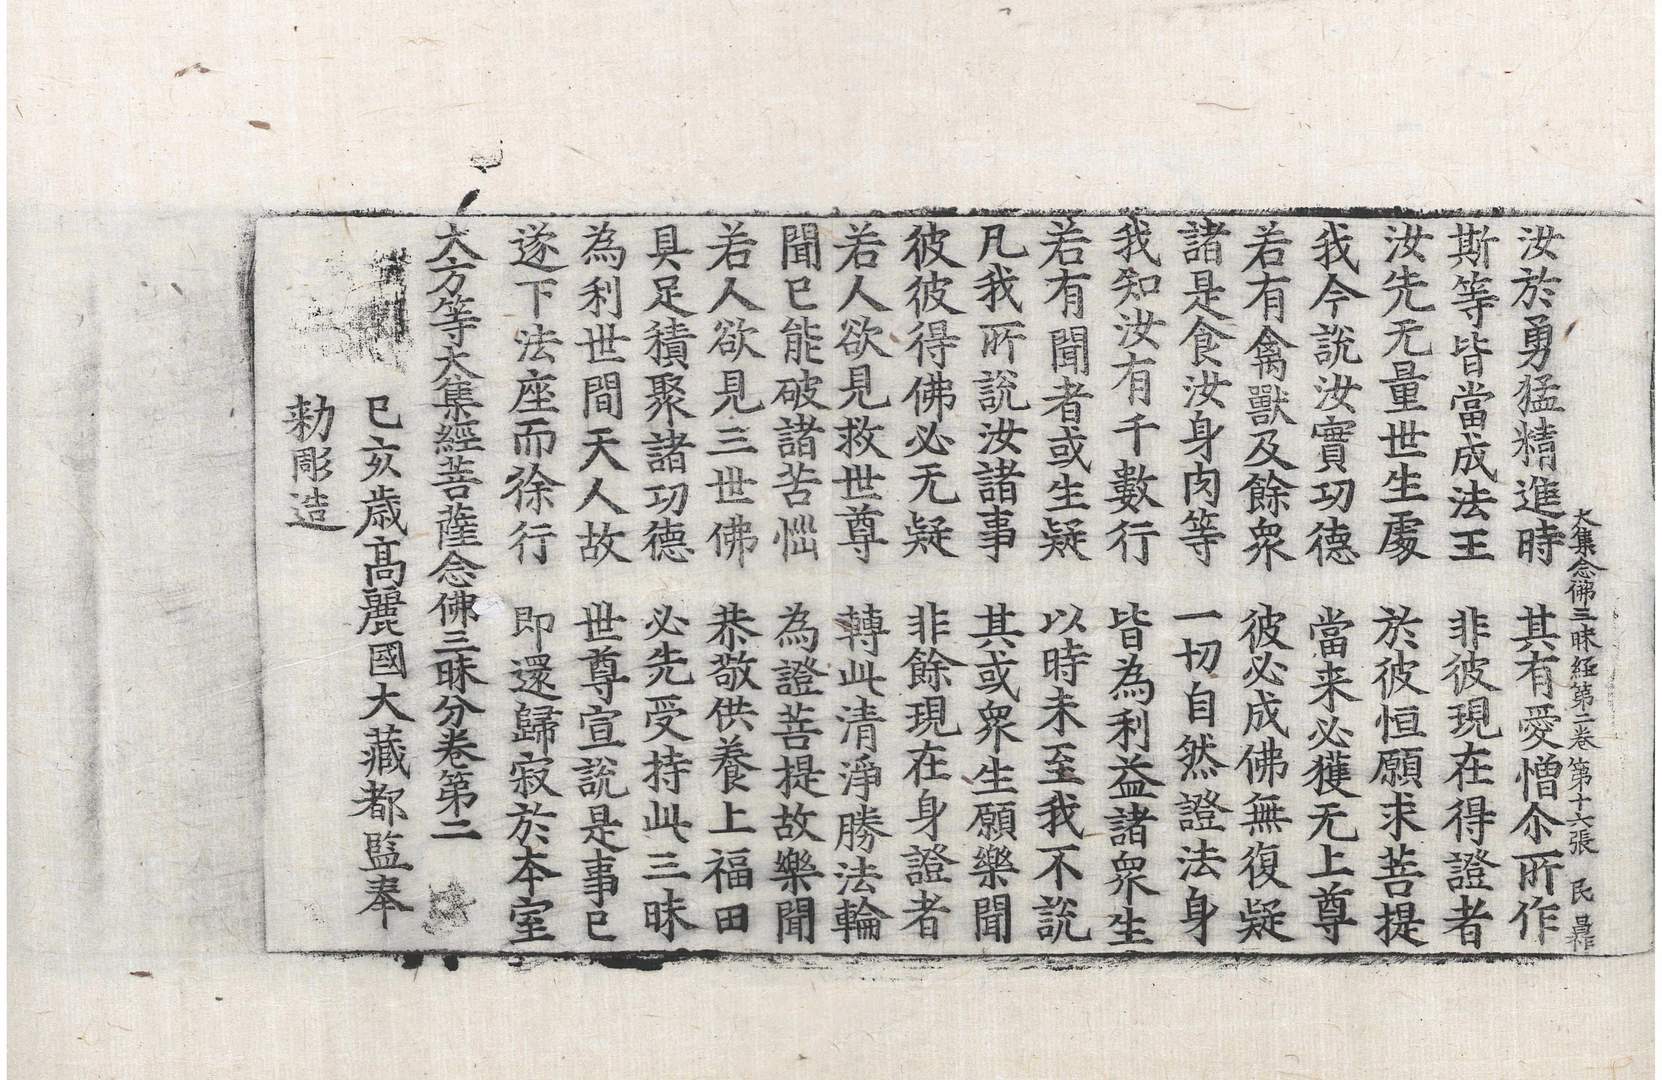 大集念佛三昧経第二卷 第十六張 民
汝於勇猛精進時 其有愛憎尒所作
斯等皆當成法王 非彼現在得證者
汝先无量世生處 於彼恒願求菩提
我今說汝實功德 當来必獲无上尊
若有禽獸及餘衆 彼必成佛無復疑
諸是食汝身肉等 一切自然證法身
我知汝有千數行 皆為利益諸衆生
若有聞者或生疑 以時未至我不說
凡我所說汝諸事 其或衆生願樂聞
彼彼得佛必无疑 非餘現在身證者
若人欲見救世尊 轉此清淨勝法輪
聞已能破諸苦惱 為證菩提故樂聞
若人欲見三世佛 恭敬供養上福田
具足積聚諸功德 必先受持此三昧
為利世間天人故 世尊宣說是事已
遂下法座而徐行 即還歸寂於本室
大方等大集經菩薩念佛三昧分卷第二
已亥歲髙麗國大藏都監奉
勑彫造